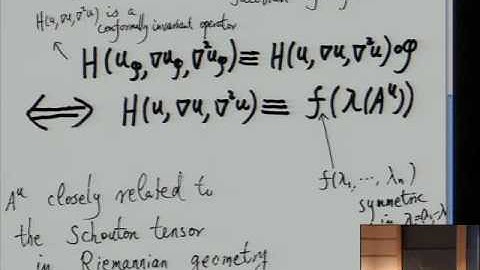 H(u, ∇u, ∇²u) is a
conformally invariant operator
H(u_φ, ∇u_φ, ∇²u_φ) ≡ H(u, ∇u, ∇²u)∘φ
⟺ H(u, ∇u, ∇²u) ≡ f(λ(A^u))
f(λ₁, ⋯, λₙ)
symmetric
in λ=(λ₁
A^u closely related to
the Schouton tensor
in Riemannian geometry